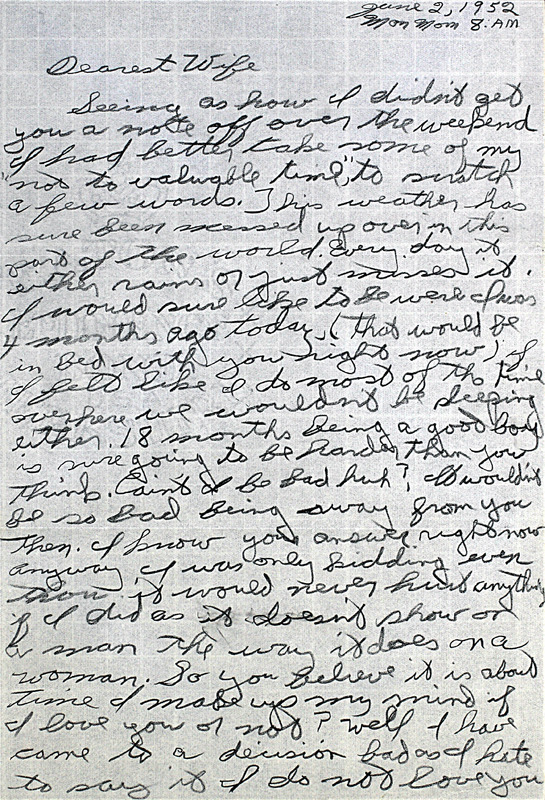 June 2, 1952
Mon Morn 8: AM
Dearest Wife
Seeing as how I didn't get
you a note off over the weekend
I had better take some of my
"not to valuable time", to scratch
a few words. This weather has
sure been messed up over in this
part of the world. Every day it
either rains or just misses it.
I would sure like to be were I was
4 months ago today, (that would be
in bed with you right now) if
I felt like I do most of the time
over here we wouldn't be sleeping
either. 18 months being a good boy
is sure going to be harder than you
think. Caint I be bad huh? It wouldn't
be so bad being away from you
then. I know your answer right now
anyway, I was only kidding even
thou it would never hurt anything
if I did as it doesn't show on
a man the way it does on a
woman. So you believe it is about
time I made up my mind if
I love you or not? Well I have
came to a decision bad as I hate
to say it I do not love you